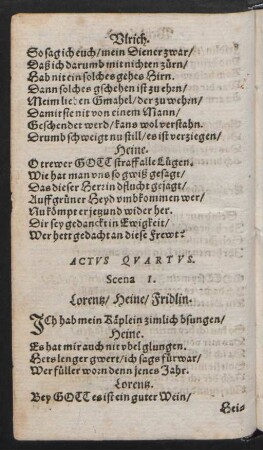 Vlrich.
So sag ich euch/ mein Diener zwar/
Daß ich darumb mit nichten zürn/
Hab nit ein solches gehes Hirn.
Dann solches gscheben ist zu ehrn/
Meim lieben Gmahel/ der zu wehrn/
Damit sie nit von einem Mann/
Geschendet werd/ kans wol verstahn.
Drumb schweigt nu still/ es ist verziegen/
Heine.
O trewer GOTT straff alle Lügen.
Wie hat man vns so gwiß gesagt/
Das dieser Herr in dsucht gejagt/
Auff grüner Heyd vmbkommen wer/
Nu kömpt er jezund wider her.
Dir sey gedanckt in Ewigkeit/
Wer hett gedacht an diese Frewt?
ACTVS QVARTVS.
Scena I.
Lorentz/ Heine/ Fridlin.
ICh hab mein Käplein zimlich bsungen/
Heine.
Es hat mir auch nit vbel glungen.
Hets lenger gwert/ ich sags fürwar/
Wer füller worn denn jenes Jahr.
Lorentz.
Bey GOTT es ist ein guter Wein/
Hei-